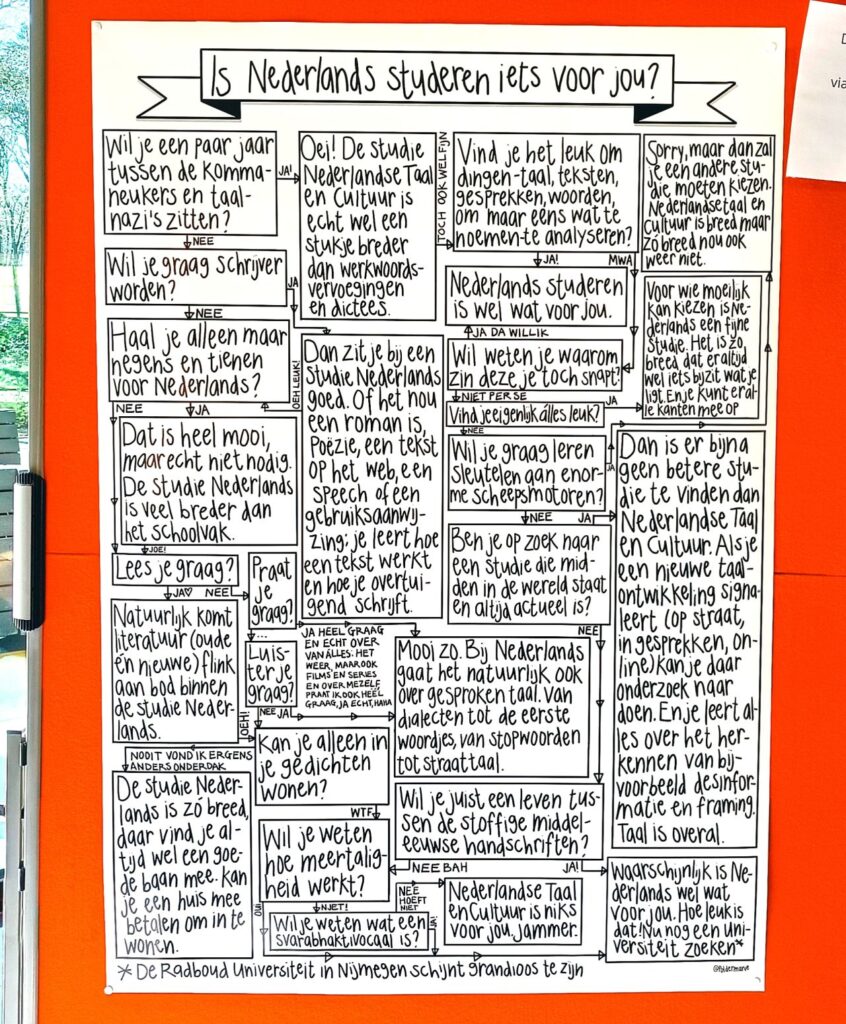 Is Nederlands studeren iets voor jou?
Wil je een paar jaar
tussen de komma-
neukers en taal-
nazi's zitten?
JA!
NEE
Oei! De studie
Nederlandse Taal
en Cultuur is
echt wel een
stukje breder
dan werkwoords-
vervoegingen
en dictees.
TOCH OOK WEL FIJN
Vind je het leuk om
dingen-taal, teksten,
gesprekken, woorden,
om maar eens wat te
noemen-te analyseren?
JA!
MWA
Sorry, maar dan zal
je een andere stu-
die moeten kiezen.
Nederlandse taal en
Cultuur is breed maar
zó breed nou ook
weer niet.
Wil je graag schrijver
worden?
JA
NEE
Nederlands studeren
is wel wat voor jou.
JA DA WIL IK
Voor wie moeilijk
kan kiezen is Ne-
derlands een fijne
studie. Het is zo
breed dat er altijd
wel iets bij zit wat je
ligt. En je kunt er al-
le kanten mee op
Haal je alleen maar
negens en tienen
voor Nederlands?
OEH LEUK!
NEE
JA
Dan zit je bij een
studie Nederlands
goed. Of het nou
een roman is,
Poëzie, een tekst
op het web, een
speech of een
gebruiksaanwij-
zing: je leert hoe
een tekst werkt
en hoe je overtui-
gend schrijft.
Wil weten je waarom
zin deze je toch snapt?
NIET PER SE
Vind je eigenlijk álles leuk?
JA
NEE
Dat is heel mooi,
maar echt niet nodig.
De studie Nederlands
is veel breder dan
het schoolvak.
JOE!
Wil je graag leren
sleutelen aan enor-
me scheepsmotoren?
JA
NEE
Dan is er bijna
geen betere stu-
die te vinden dan
Nederlandse Taal
en Cultuur. Als je
een nieuwe taal-
ontwikkeling signa-
leert (op straat,
in gesprekken, on-
line) kan je daar
onderzoek naar
doen. En je leert al-
les over het her-
kennen van bij-
voorbeeld desinfor-
matie en framing.
Taal is overal.
Ben je op zoek naar
een studie die mid-
den in de wereld staat
en altijd actueel is?
JA
NEE
Lees je graag?
JA♡
NEE
Praat
je
graag?
...
JA HEEL GRAAG
EN ECHT OVER
VAN ALLES: HET
WEER, MAAR OOK
FILMS EN SERIES
EN OVER MEZELF
PRAAT IK OOK HEEL
GRAAG, JA ECHT, HAHA
Natuurlijk komt
literatuur (oude
én nieuwe) flink
aan bod binnen
de studie Neder-
lands.
OEH!
Luis-
ter je
graag?
NEE
JA!
Mooi zo. Bij Nederlands
gaat het natuurlijk ook
over gesproken taal. Van
dialecten tot de eerste
woordjes, van stopwoorden
tot straattaal.
Kan je alleen in
je gedichten
wonen?
NOOIT VOND IK ERGENS
ANDERS ONDERDAK
WTF
De studie Neder-
lands is zó breed,
daar vind je al-
tijd wel een goe-
de baan mee. Kan
je een huis mee
betalen om in te
wonen.
Wil je juist een leven tus-
sen de stoffige middel-
eeuwse handschriften?
NEE BAH
JA!
Wil je weten
hoe meertalig-
heid werkt?
OUI
NJET!
NEE
HOEFT
NIET
Nederlandse Taal
en Cultuur is niks
voor jou. Jammer.
Waarschijnlijk is Ne-
derlands wel wat
voor jou. Hoe leuk is
dat! Nu nog een uni-
versiteit zoeken*
Wil je weten wat een
svarabhaktivocaal is?
JA!
* De Radboud Universiteit in Nijmegen schijnt grandioos te zijn
@Poldermarve
D
via